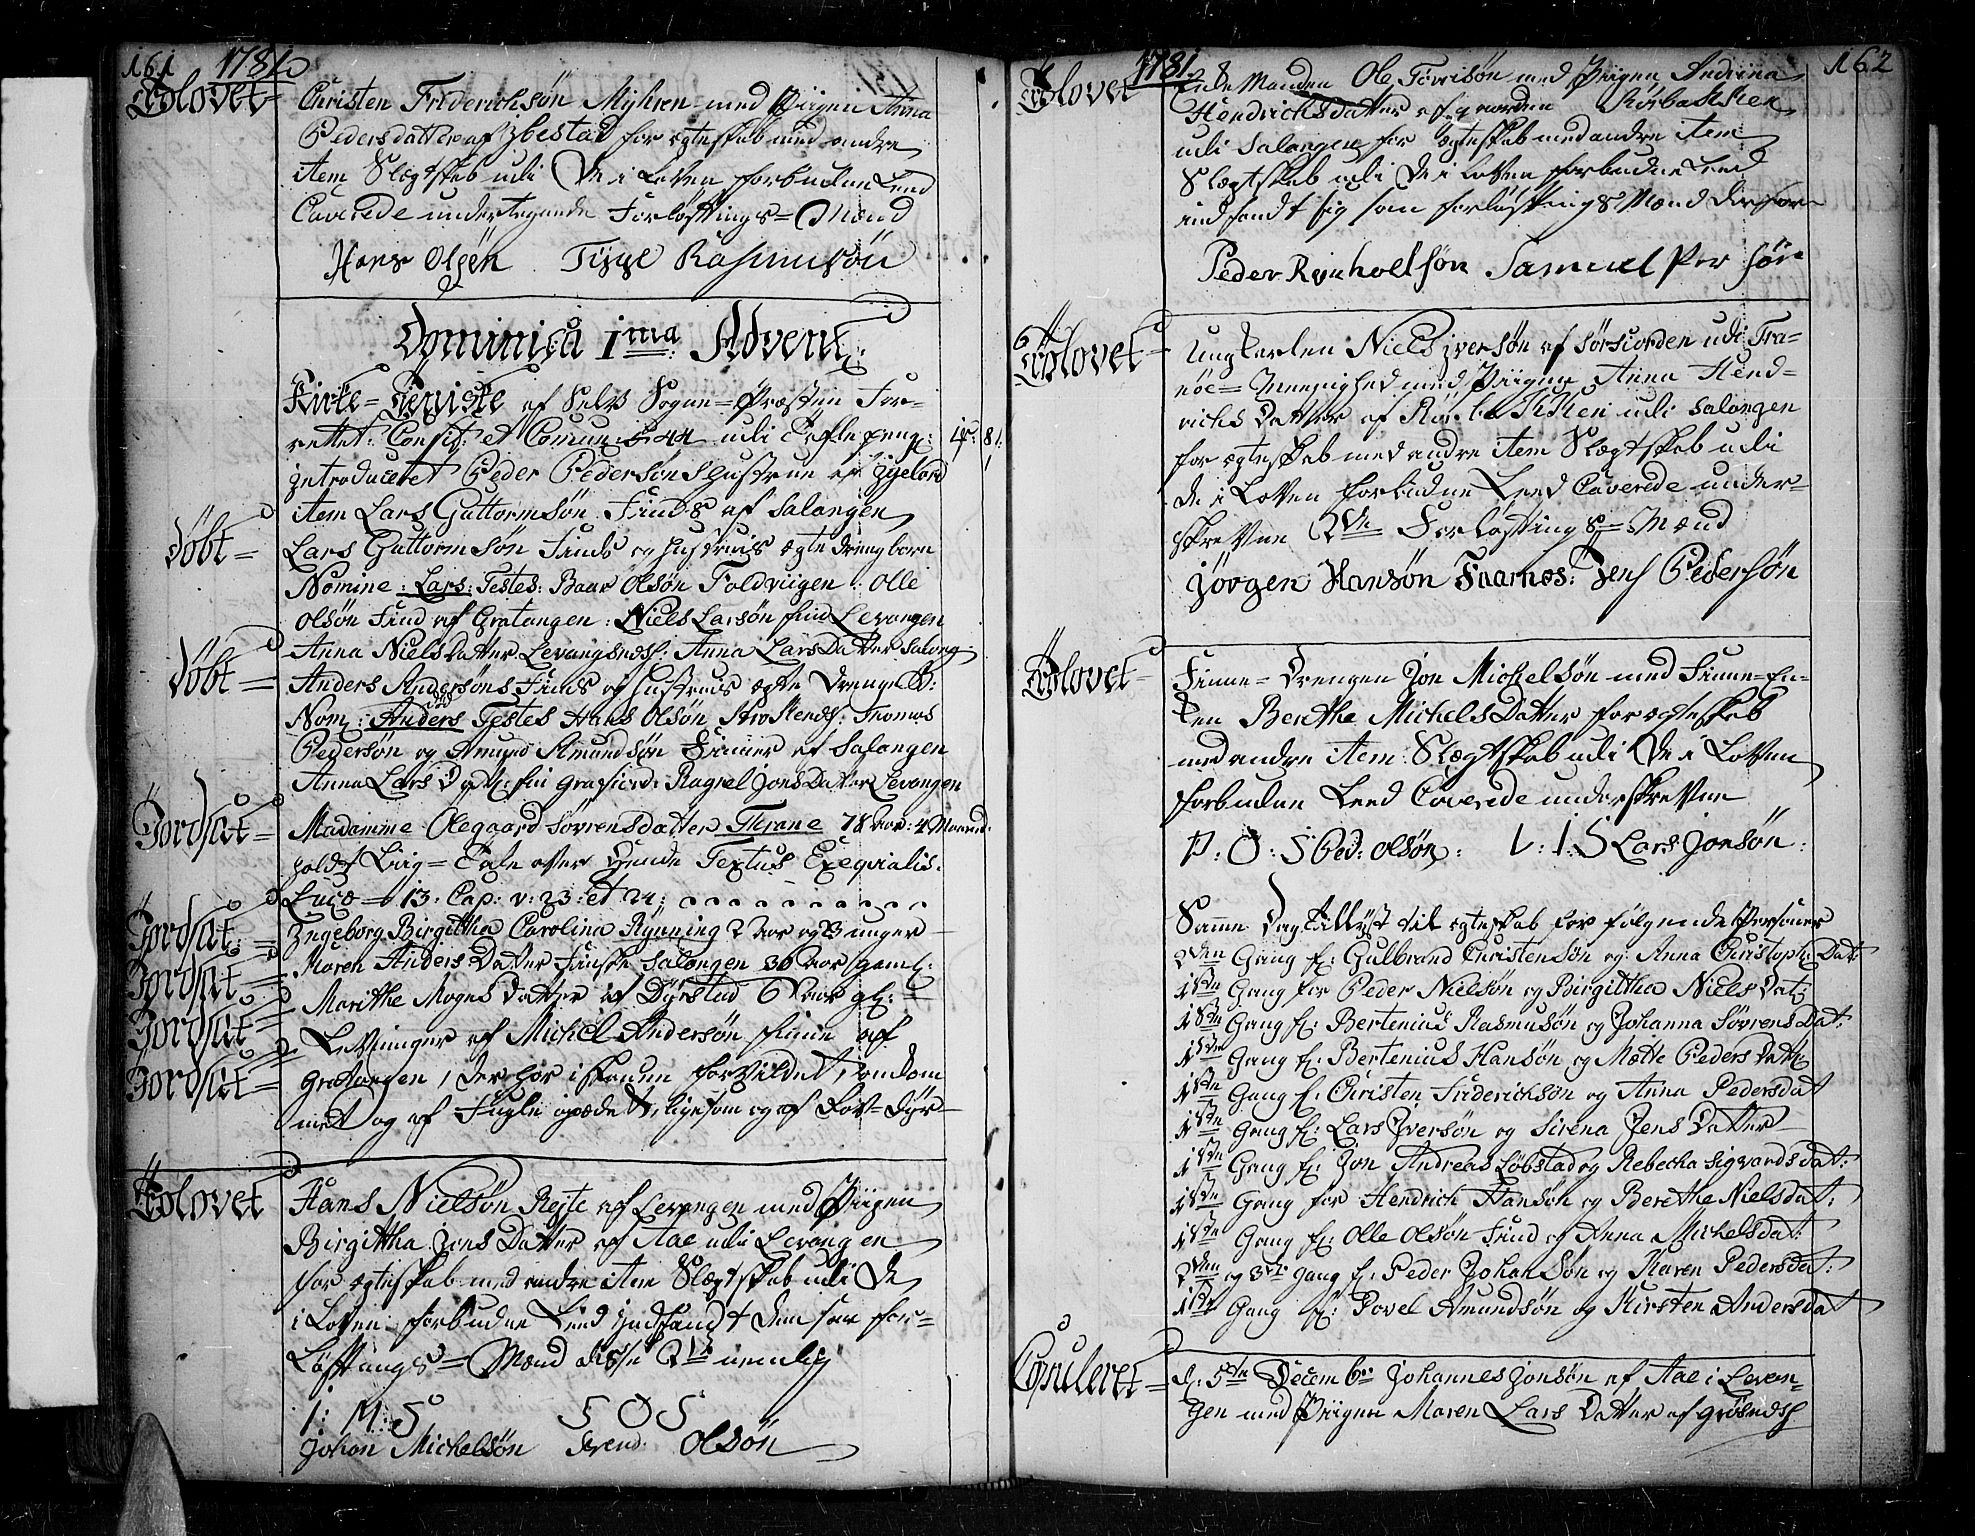 161 1781
Trolovet = Christen Friderichsön Myhren med Piigen Anna
Pedersdatter af Ibestad for ægteskab med andre
item Slægtskab udi De i Loven forbudne Leed
Caverede undertegnede Forløftnings = Mænd
Hans Olsen Tygge Rasmusön
Dominica 1ma Advent:
Kirke = Tieniste af Selv Sogne = Præsten For=
rettet: Confit: et Comun: 544 udi Tafle peng:
introduceret Peder Pedersøns Hustrue af
item Lars Guttormsön Finds af Salangen
Døbt = Lars Guttormsön Finds og Hustrues ægte drengebarn
Nomine: Lars: Testes: Baar Olsön Foldviigen: Olle
Olsön Find af Gratangen: Niels Larsön find Levangen
Anna Niels Datter Levangsnds: Anna Lars Datter Salang
Døbt = Anders Andersöns Finds og Hustrues ægte Drenge B:
Nom: Anders Testes Hans Olsön Thomas
Pedersön og Amund Amundsön Finner af Salangen
Anna Lars Datt: fin Grafiord: Ragnel Jons Datter Levangen
Jordsat = Madamme Olegaard Sövrensdatter Thrane 78 Aar: 4 Maaned:
holdt Liig = Tale over Hende Textus Exequialis:
Lucæ 13: Cap: v: 23: et 24:
Jordsat: = Ingeborg Birgittha Carolina Rÿnning 2 Aar og 3 uger
Jordsat = Maren Anders Datter Finske Salangen 30 Aar gaml:
Jordsat = Marithe Mogns Datter af Dyrstad 6 Aar gl:
Jordsat = Levninger af Michel Andersön Finne af
Gratangen, der har i skouen forvildet, omkom
met og af Fugle opædet, ligesom og af Rov = Dyr
Trolovet Hans Nielsön Rejte af Levangen med Piigen
Birgittha Jons Datter af Aae udi Levangen
for ægteskab med andre item Slægtskab udi De
i Loven forbudne Leed Indfandt dem som for=
Løftnings = Mænd disse 2de nemlig
I: M: S S O S
Johan Michelsön Svend: Olsön
1781 162
Trolovet Enke Manden Ole Törrisön med Piigen Andrina
Hendrichsdatter af gaarden Rørbakken
udi Salangen for ægteskab med andre item
Slægtskab udi De i Loven forbudne Leed
indfandt sig som forløftnings Mænd derfor
Peder Reinholtsøn Samuel Per søn
Trolovet = Ungkarlen Niels Iversön af Sørfiorden udi Tra=
nöe = Meenighed med Piigen Anna Hend=
richs Datter af Rørbakken udi Salangen
for ægteskab med andre item Slægtskab udi
De i Loven forbudne Leed Caverede under=
skrevne 2de Forløftnings = Mænd
Jörgen Hansön Faarnæs: Jens Pedersön
Trolovet = Finne = Drengen Jon Michelsön med Finne = En=
ken Berithe Michels Datter for ægteskab
med andre item Slægtskab udi De i Loven
forbudne Leed Caverede underskrevne
P: O: S Ped: Olsön: L: I: S Lars Jonsön:
Samme Dag tillyst til ægteskab for følgende Personer
2den Gang f: Gulbrand Christensön og Anna Christoph: Dat:
1ste Gang for Peder Nielsön og Birgittha Niels Dat:
1ste Gang f: Bertenius Rasmusön og Johanna Sövrens Dat:
1ste Gang f: Bertenius Hansön og Mætte Peders Datt:
1ste Gang f: Christen Friderichsön og Anna Pedersdat
1ste Gang f: Lars Iversön og Sirena Jens Datter
1ste Gang f: Jon Andreas Löbstad og Rebecka Sigvardsdat:
1ste Gang for Hendrich Hansön og Berethe Nielsdat:
1ste Gang f: Olle Olsön Find og Anna Michelsdat:
2den og 3die gang f: Peder Johansön og Karen Pedersdat:
1ste Gang f: Povel Amundsön og Kirsten Andersdat
Copuleret = d: 5te Decembr Johannes Jonsön af Aae i Levan=
gen med Piigen Maren Lars Datter af Grøsnds